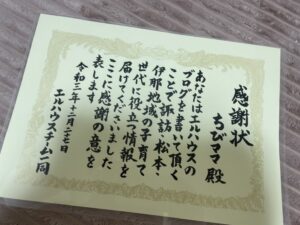 感謝状
ちびママ 殿
あなたはエルハウスの
ブログを書いて頂く
ことで諏訪・松本・
伊那地域の子育て
世代に役立つ情報を
届けてくださいました
ここに感謝の意を
表します
令和三年十二月二七日
エルハウスチーム一同